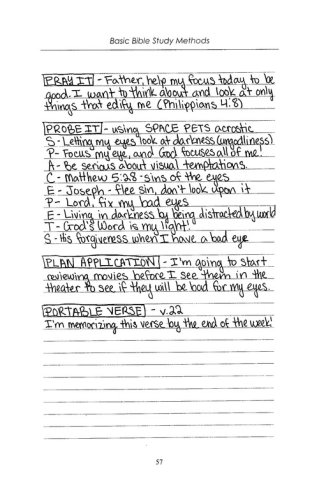 Basic Bible Study Methods
PRAY IT - Father, help my focus today to be
good. I want to think about and look at only
things that edify me (Philippians 4:8)
PROBE IT - using SPACE PETS acrostic
S - Letting my eyes look at darkness (ungodliness)
P - Focus my eye, and God focuses all of me!
A - Be serious about visual temptations.
C - Matthew 5:28 - sins of the eyes
E - Joseph - flee sin, don't look upon it
P - Lord, fix my bad eyes
E - Living in darkness by being distracted by world
T - God's Word is my light!
S - His forgiveness when I have a bad eye
PLAN APPLICATION - I'm going to start
reviewing movies before I see them in the
theater to see if they will be bad for my eyes.
PORTABLE VERSE - v.22
I'm memorizing this verse by the end of the week!
57